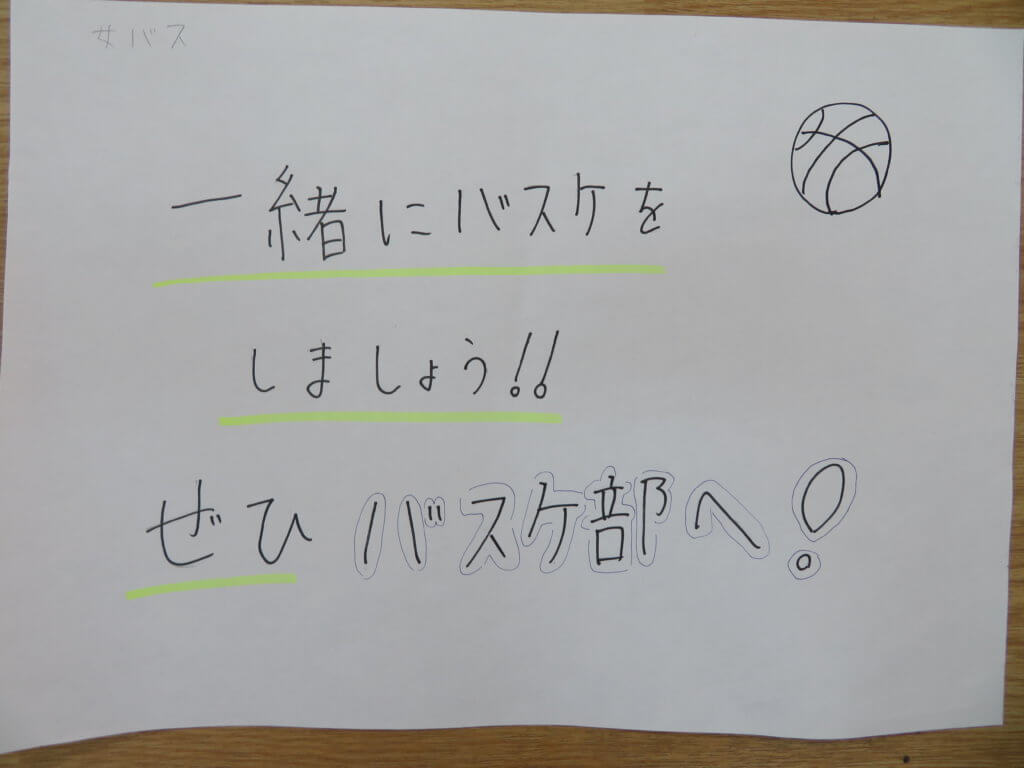 女バス
一緒にバスケを
しましょう!!
ぜひバスケ部へ!